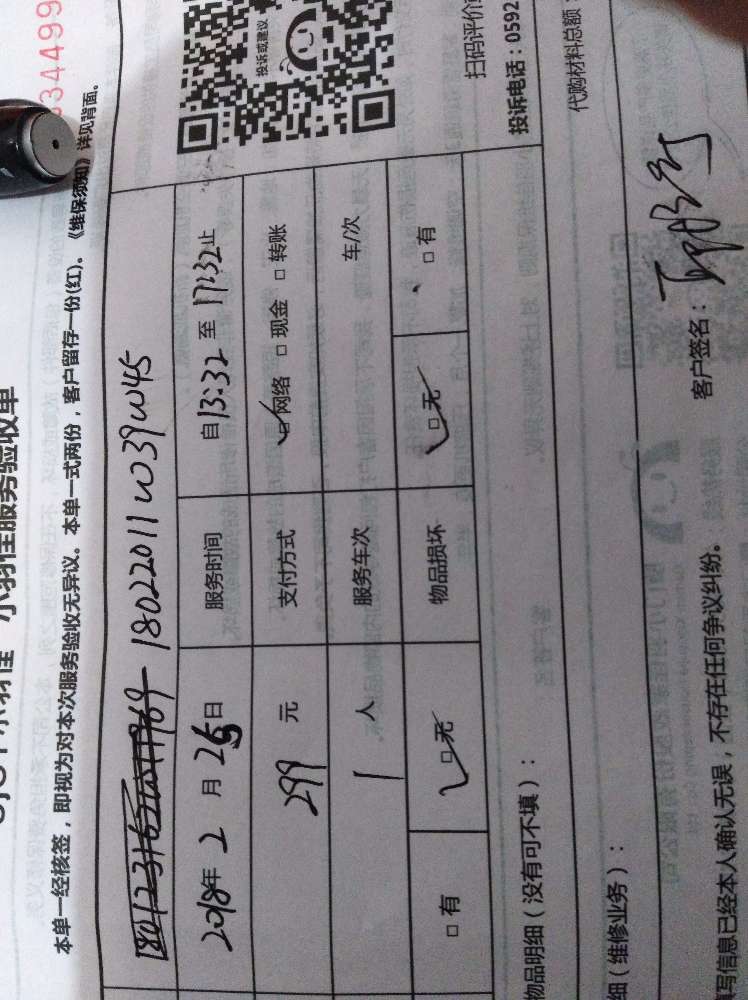 小羽佳服务验收单
334499
本单一经核签，即视为对本次服务验收无异议。本单一式两份，客户留存一份(红)。《维保须知》详见背面。
18022011W39W45
2018年2月26日 服务时间 自13:32至17:32止
299元 支付方式 □网络 □现金 □转账
1人 服务车次 车/次
□有 □无 物品损坏 □无 □有
投诉或建议
扫码评价
投诉电话：0592
物品明细（没有可不填）：
代购材料总额：
细（维修业务）：
填写信息已经本人确认无误，不存在任何争议纠纷。 客户签名：